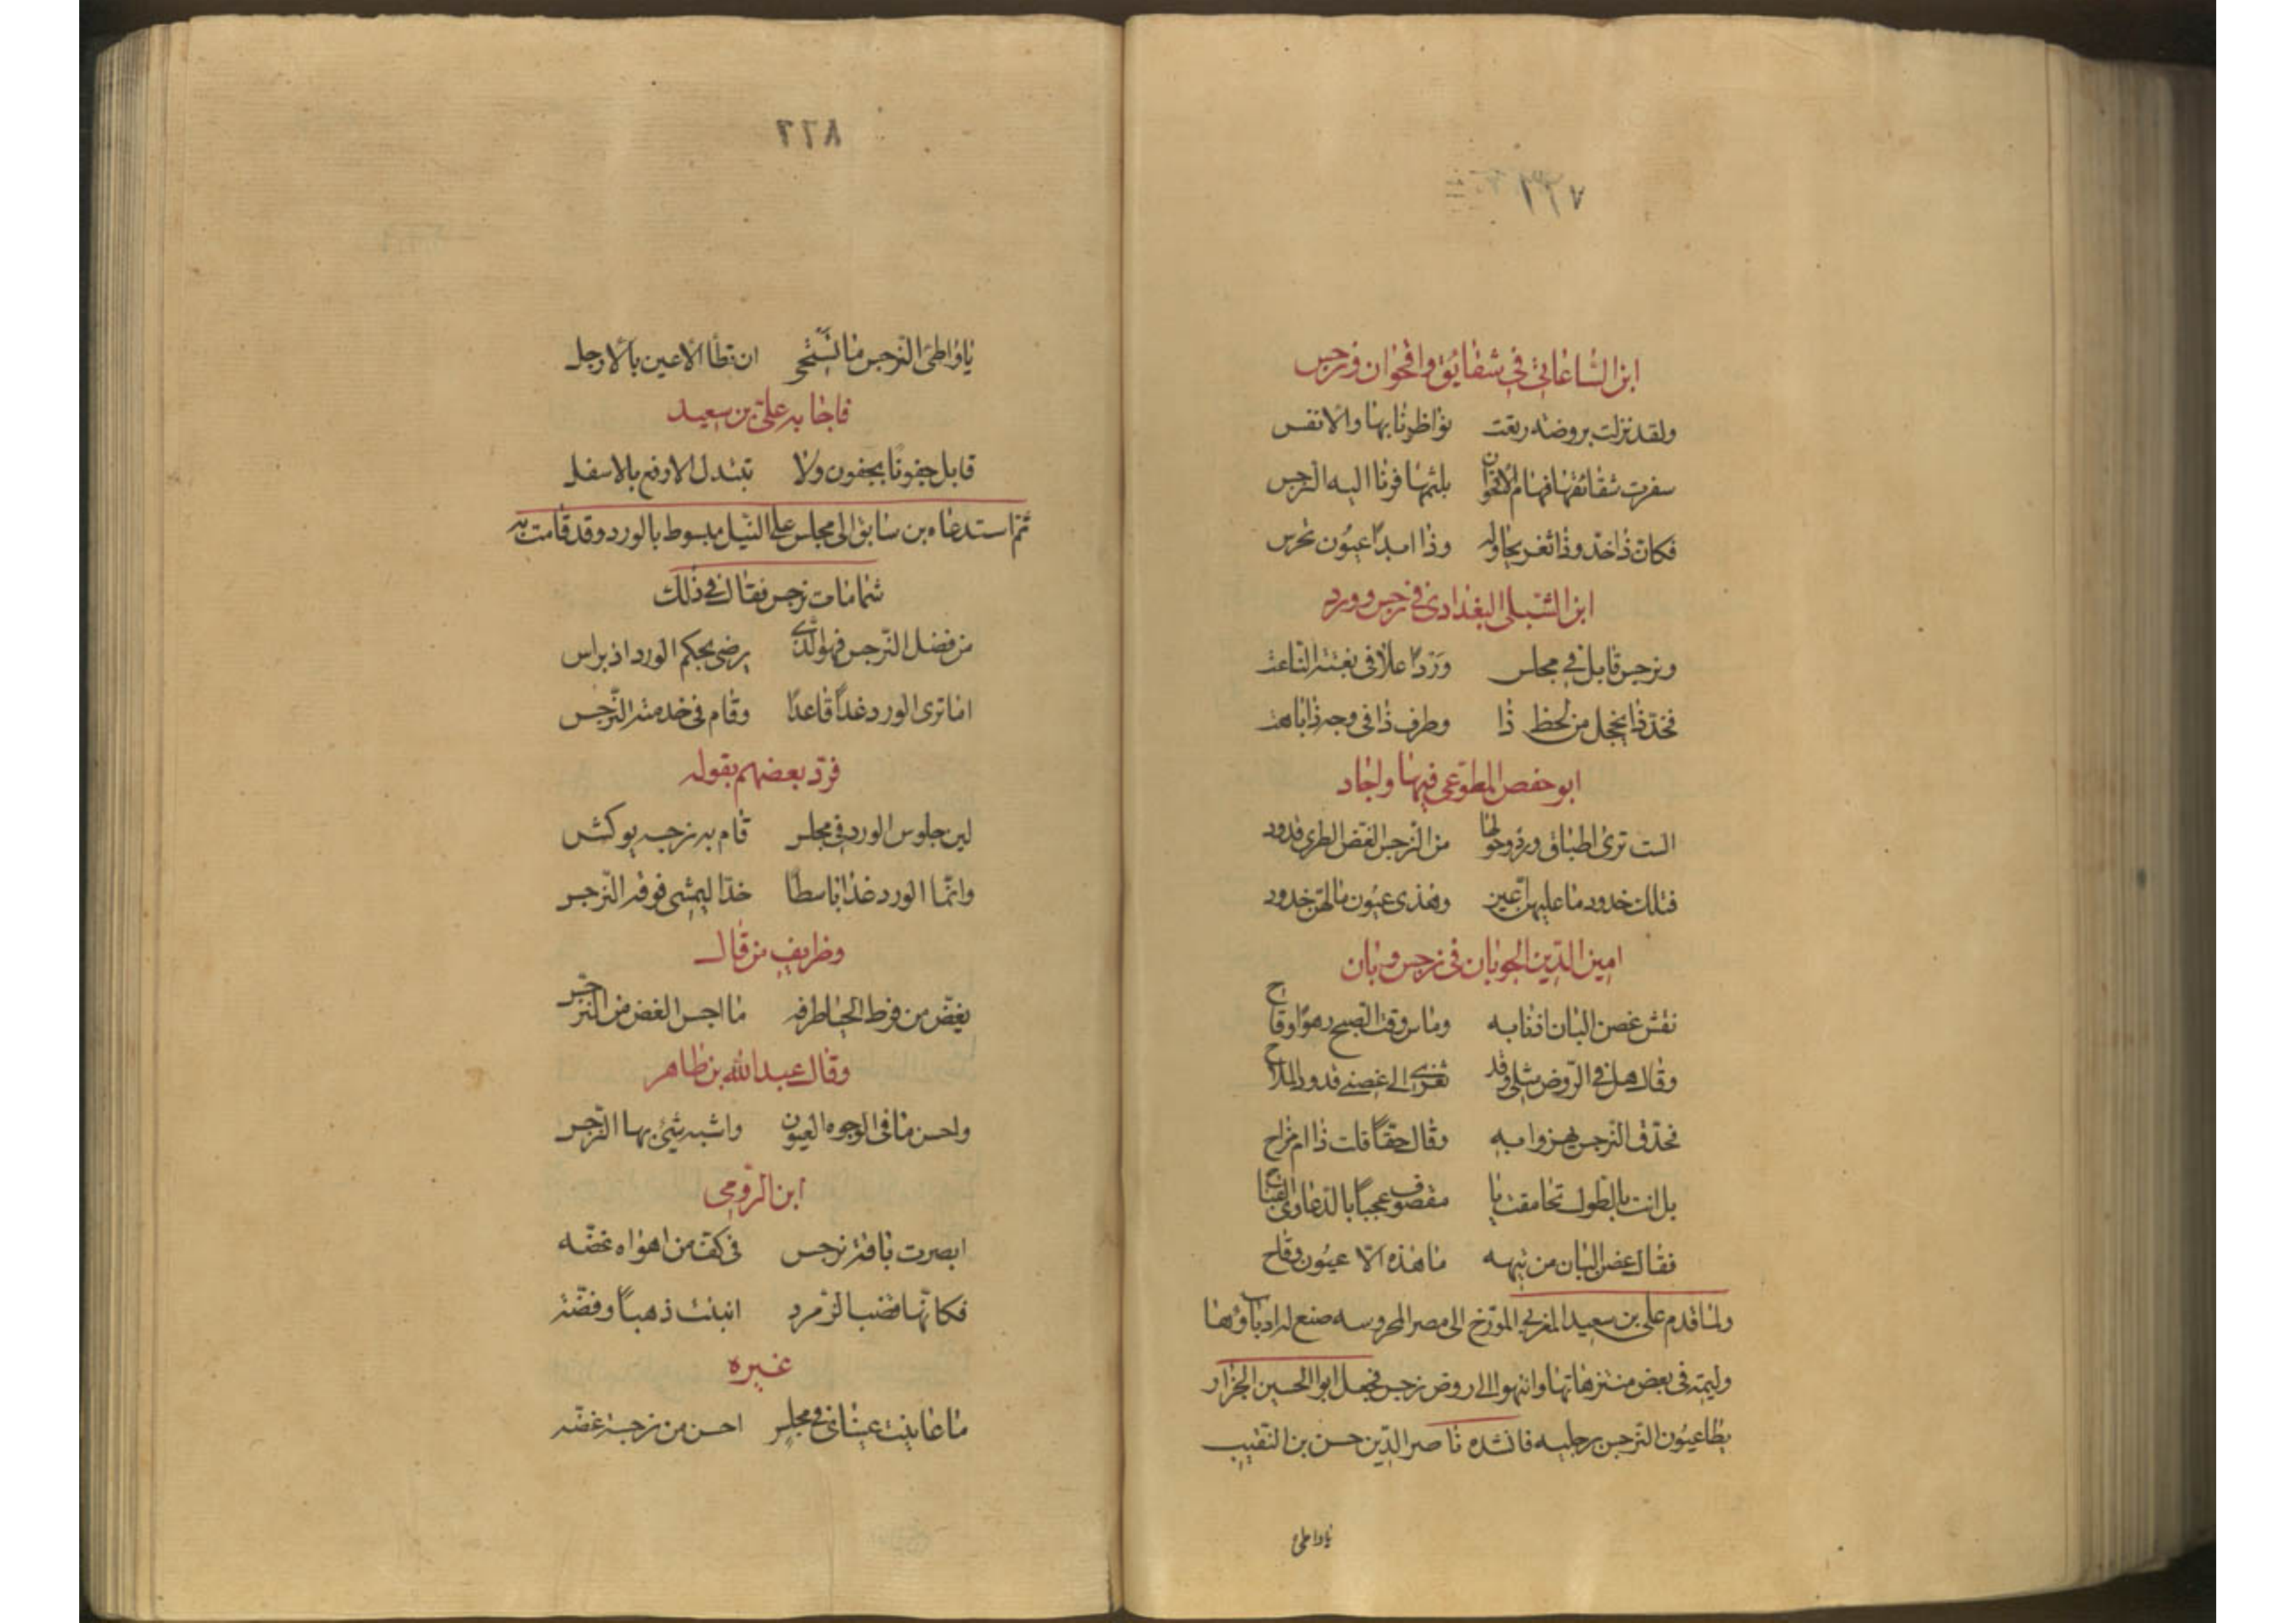 ابن الساعاتي في شقايق واقحوان ونرجس
ولقد نزلت بروضة ربعت نواظرنا بها والانفس
سفرت شقائقها فهام الاقحوان بلثمها فرنا اليه النرجس
فكان ذا خد وذا ثغر يحاوله وذا ابدا عيون تحرس
ابن الشبلي البغدادي في نرجس وورد
ونرجس قابل في مجلس وردا علا في نعته الناعت
فخد ذا يخجل من لحظ ذا وطرف ذا في وجه ذا باهت
ابو حفص المطوعي فيها واجاد
الست ترى اطباق ورد وحولها من النرجس الغض الطري قدود
فتلك خدود ما عليهن اعين وهذى عيون ما لهن خدود
امين الدين الجوبان في نرجس وبان
نفش غصن البان اذنابه وماس وقت الصبح زهوا وفاح
وقال هل في الروض مثلي وقد تعزى الى غصني قدود الملاح
فحدق النرجس يهزوا به وقال حقا قلت ذا ام مزاح
بل انت بالطول تحامقت يا مقصوف عجبا بالدعاوى القباح
فقال غصن البان من تيهه ما هذه الا عيون وقاح
ولما قدم علي بن سعيد المغربي المورخ الى مصر المحروسه صنع له ادباوها
وليمة في بعض منتزهاتها وانتهوا الى روض نرجس فجعل ابو الحسين الجزار
يطا عيون النرجس برجليه فانشده ناصر الدين حسن بن النقيب
ياواطئ
٨٦٦
ياواطئ النرجس ما تستحي ان تطا الاعين بالارجل
فاجابه علي بن سعيد
قابل جفونا بجفون ولا تبتدل الارفع بالاسفل
ثم استدعاه بن سابق الى مجلس على النيل مبسوط بالورد وقد قامت به
شمامات نرجس فقال في ذلك
من فضل النرجس فهو الذي يرضى بحكم الورد اذ يراس
اما ترى الورد غدا قاعدا وقام في خدمته النرجس
فرد بعضهم بقوله
لين جلوس الورد في مجلس قام به نرجسه يوكس
وانما الورد غدا باسطا خدا ليمشي فوقه النرجس
وظريف من قال
يغض من فرط الحيا طرفه ما احسن الغض من النرجس
وقال عبد الله بن طاهر
واحسن ما في الوجوه العيون واشبه شئ بها النرجس
ابن الرومي
ابصرت باقة نرجس في كف من اهواه غضه
فكانها قضب الزمرد انبتت ذهبا وفضة
غيره
ما عاينت عيناي في مجلس احسن من نرجسة غضه